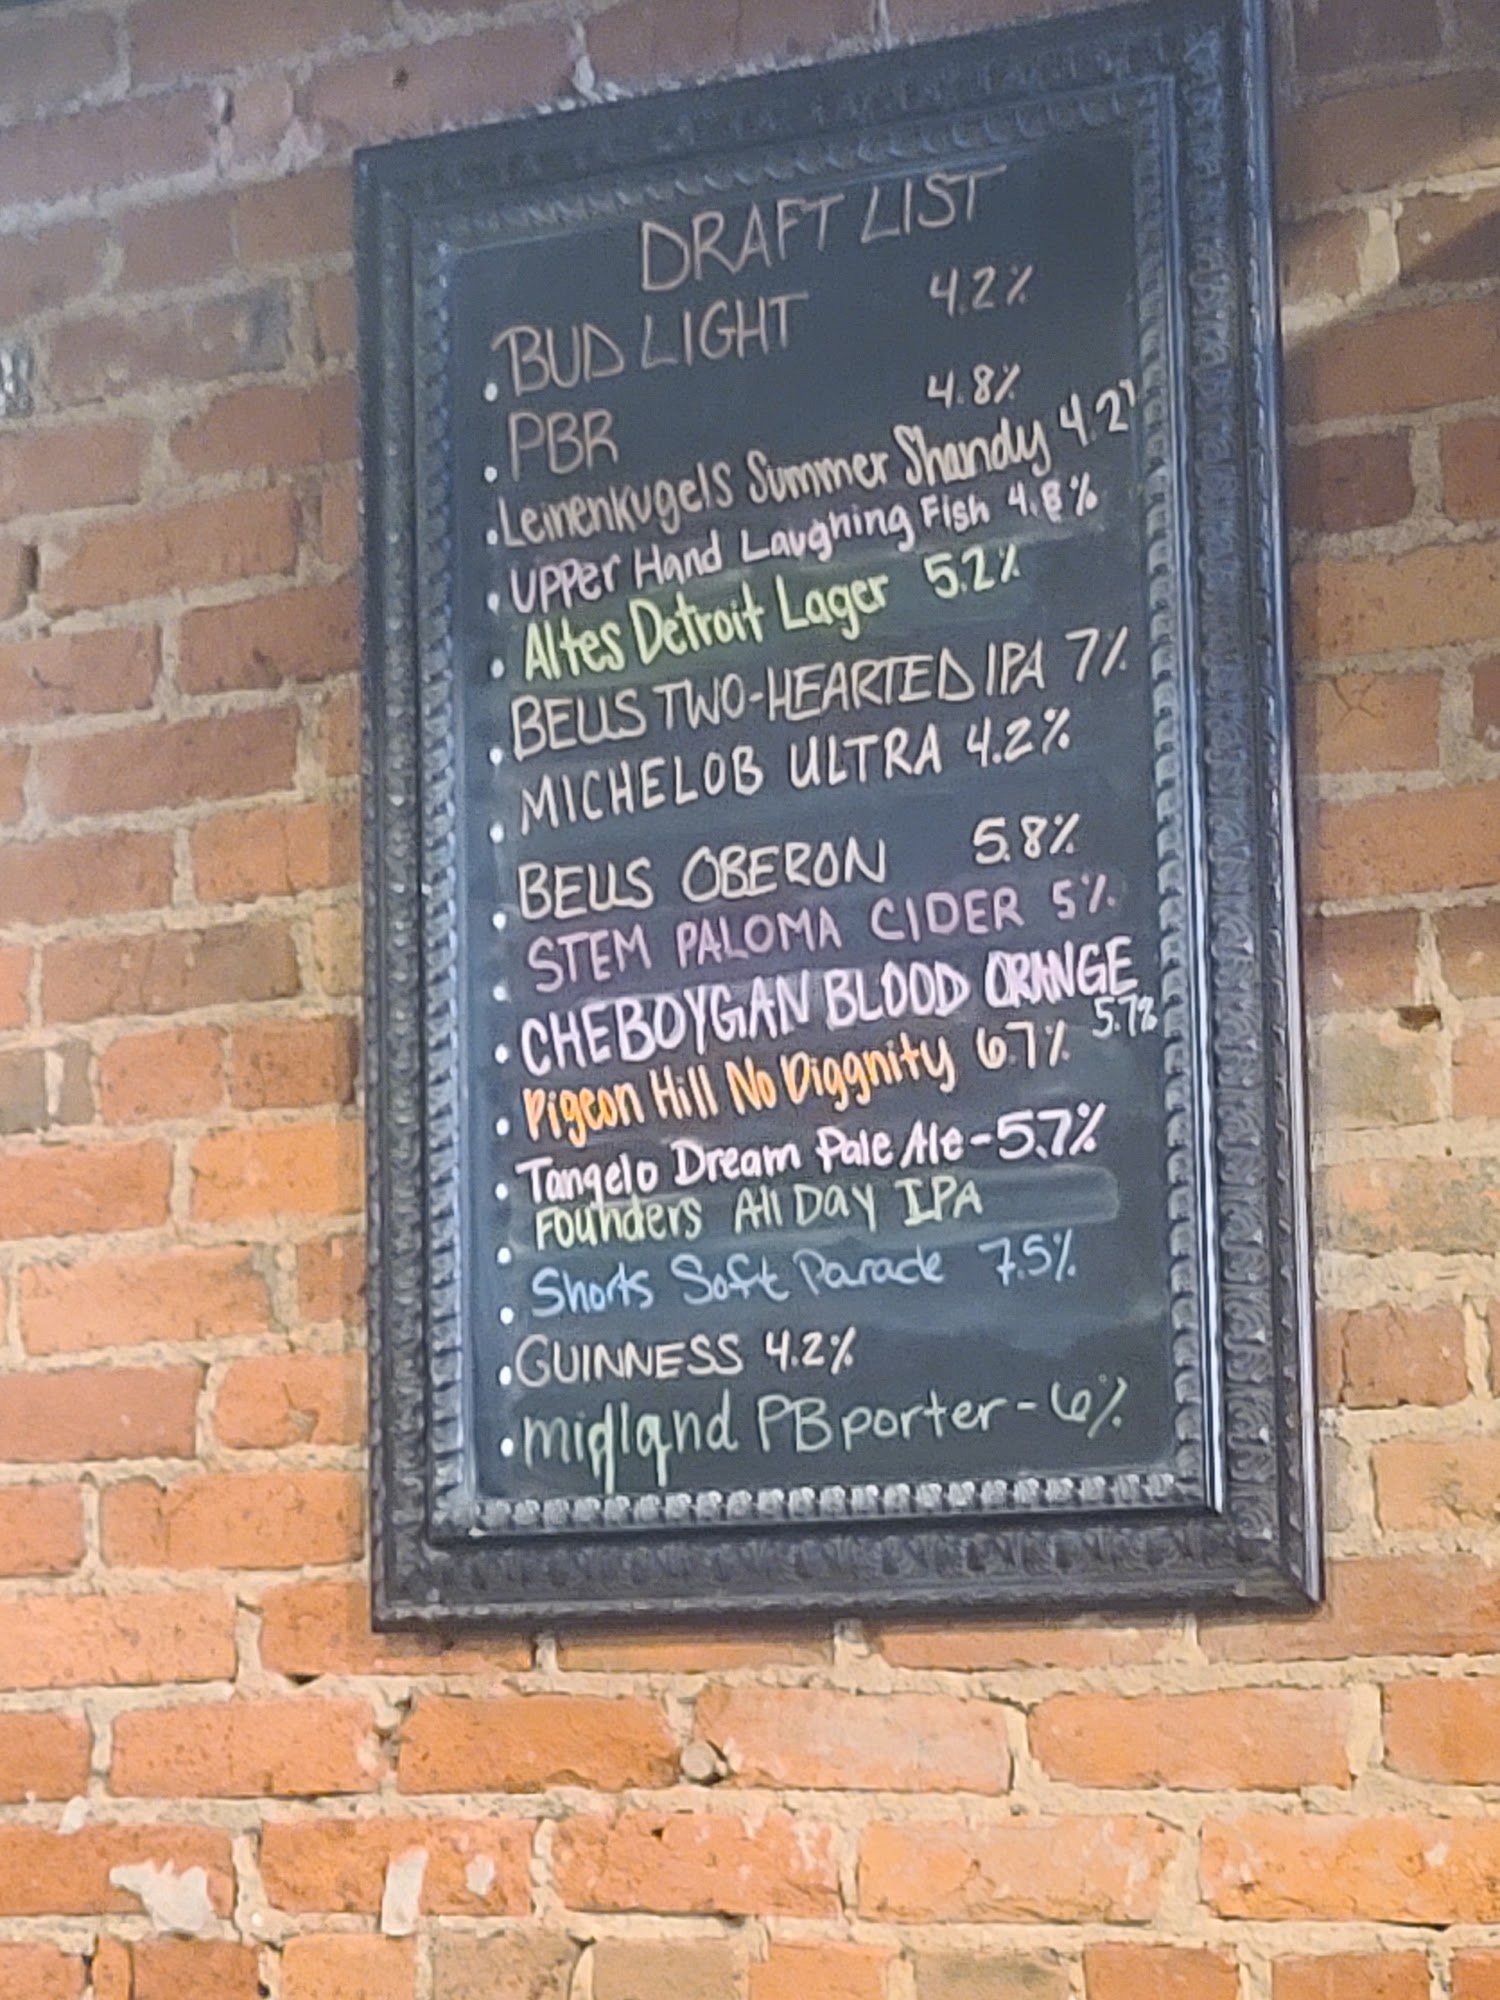 DRAFT LIST
. BUD LIGHT 4.2%
. PBR 4.8%
. Leinenkugels Summer Shandy 4.2%
. Upper Hand Laughing Fish 4.8%
. Altes Detroit Lager 5.2%
. BELLS TWO-HEARTED IPA 7%
. MICHELOB ULTRA 4.2%
. BELLS OBERON 5.8%
. STEM PALOMA CIDER 5%
. CHEBOYGAN BLOOD ORANGE
5.7%
. Pigeon Hill No Diggnity 6.7%
. Tangelo Dream Pale Ale - 5.7%
. Founders All Day IPA
. Shorts Soft Parade 7.5%
. GUINNESS 4.2%
. midland PB porter - 6%